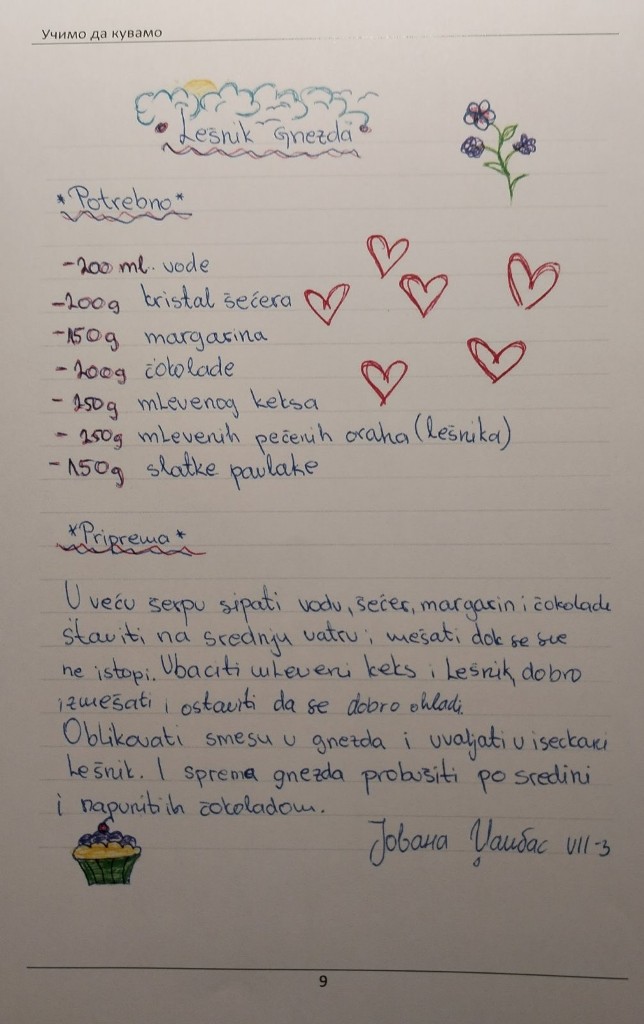 Учимо да кувамо
Lešnik Gnezda
*Potrebno*
-200 ml. vode
-200g kristal šećera
-150g margarina
-200g čokolade
- 250g mlevenog keksa
- 250g mlevenih pečenih oraha (lešnika)
-150g slatke pavlake
*Priprema*
U veću šerpu sipati vodu, šećer, margarin i čokolade
staviti na srednju vatru i mešati dok se sve
ne istopi. Ubaciti mleveni keks i lešnik, dobro
izmešati i ostaviti da se dobro ohladi.
Oblikovati smesu u gnezda i uvaljati u iseckani
lešnik. I sprema gnezda probušiti po sredini
i napuniti ih čokoladom.
Јована Џамбас VII-3
9